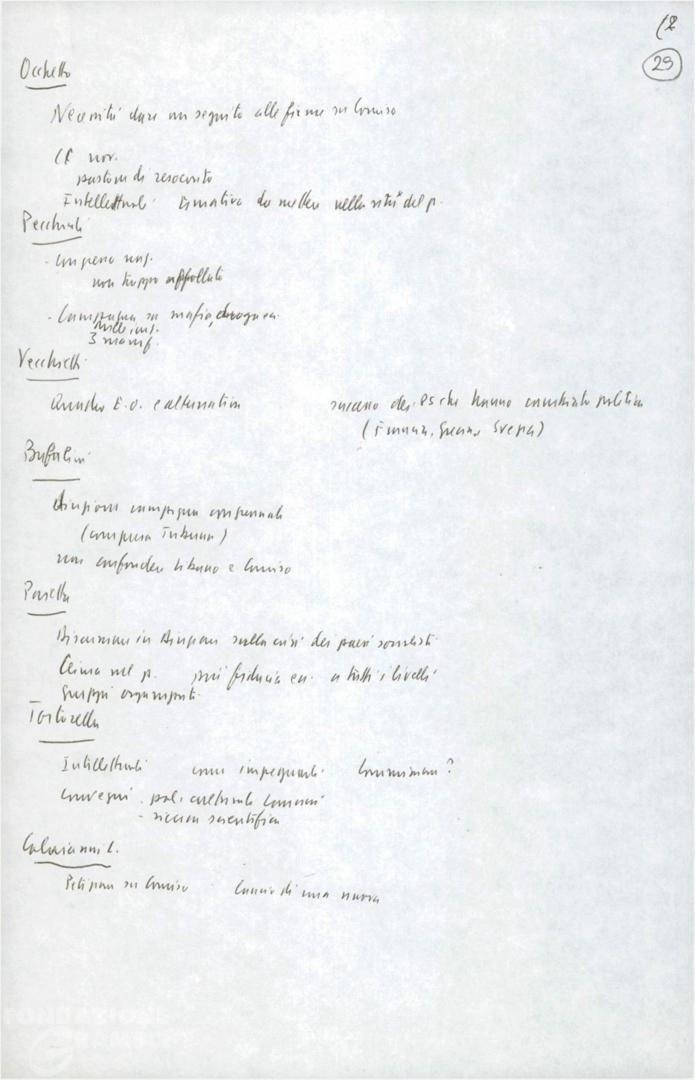 12
29
Occhetto
Necessità dare un seguito alle firme su Comiso
CC nov.
di resoconto
Intellettuali iniziativa da mettere nella vita del p.
Pecchioli
- Congressi reg.
non troppo affollati
- Campagna su mafia, droga
3 manif.
Vecchietti
Quadro E.O. e alternativa
successo dei PS che hanno cambiato politica
(Francia, Grecia, Svezia)
Bufalini
Direzione campagna congressuale
(compresa Tribuna)
non confondere Libano e Comiso
Pajetta
Discussione in Direzione sulla crisi dei paesi socialisti
Clima nel p. più fiducia ecc. a tutti i livelli
Gruppi
Tortorella
Intellettuali come impegnarli Commissione?
Convegni - pol. culturale Comuni
- ricerca scientifica
Colajanni L.
Petizione su Comiso Lancio di una nuova